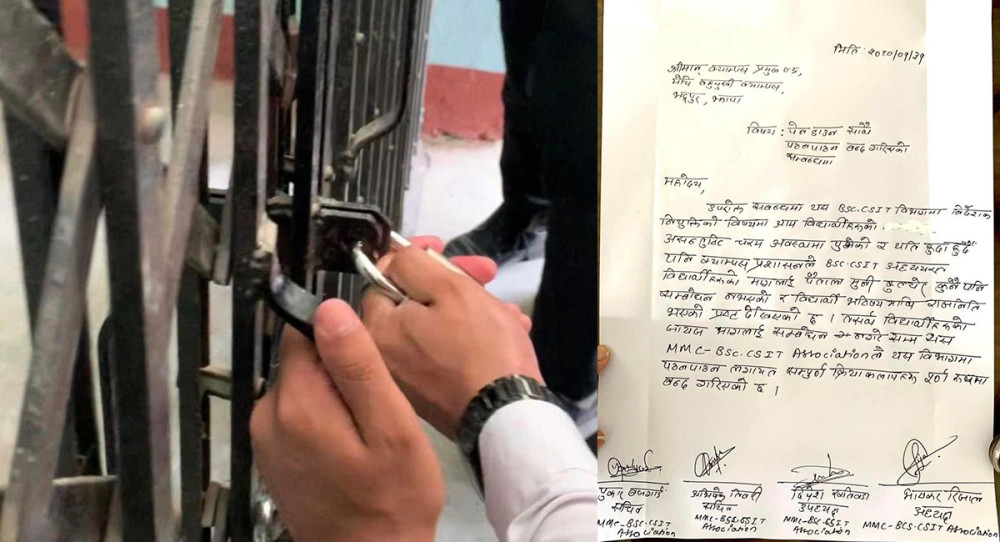 मिति: २०८०/०९/२९
श्रीमान् क्याम्पस प्रमुख ज्यू,
मेची बहुमुखी क्याम्पस,
भद्रपुर, झापा
विषय: पेन डाउन सँगै
पठनपाठन बन्द गरिएको
सम्बन्धमा
महोदय,
उपरोक्त सम्बन्धमा यस BSC.CSIT विभागमा निर्देशक
नियुक्तिको विषयमा आम विद्यार्थीहरुको
असन्तुष्टि चरम अवस्थामा पुगेको र यति हुदा हुदै
पनि क्याम्पस प्रशासनले BSC.CSIT अध्ययनरत
विद्यार्थीहरुको मागलाई सुनी कुनै पनि
सम्बोधन नभएको र विद्यार्थी भविष्य माथि राजनिति
भएको प्रष्ट देखिएको छ । तसर्थ विद्यार्थीहरुको
जायज मागलाई सम्बोधन नगरे सम्म यस
MMC-BSC.CSIT Associationले यस विभागमा
पठनपाठन लगायत सम्पूर्ण क्रियाकलापहरु पूर्ण रुपमा
बन्द गरिएको छ ।
सचिव
MMC-BSC.CSIT
Association
सचिव
MMC-BSC.CSIT
Association
उपाध्यक्ष
MMC-BSC.CSIT
Association
अध्यक्ष
MMC-BCS.CSIT Association